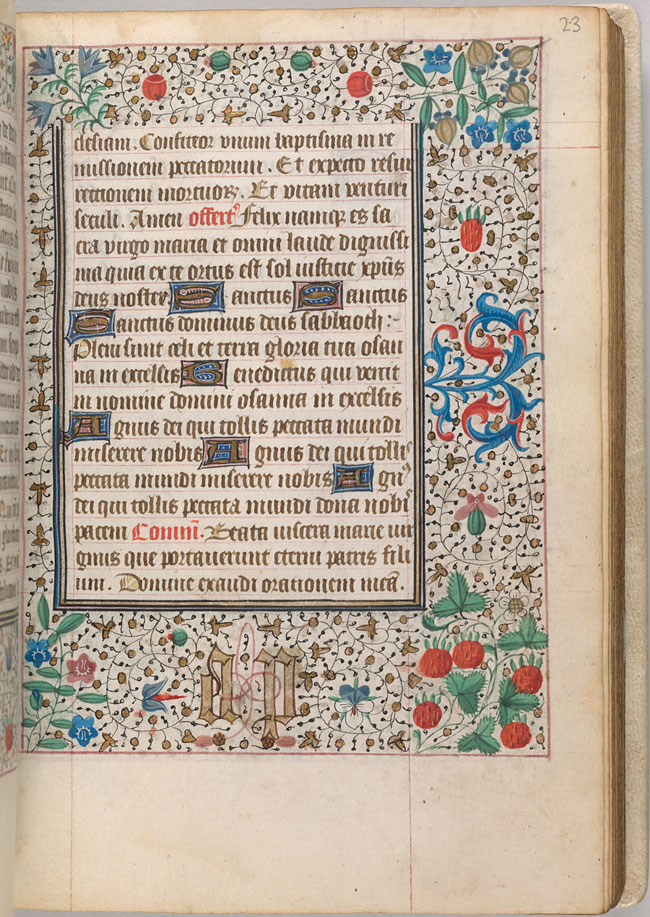 23
clesiam. Confiteor vnum baptisma in re
missionem peccatorum. Et expecto resur
rectionem mortuorꝝ. Et vitam venturi
seculi. Amen offertꝰ Felix namqꝫ es sa
cra virgo maria et omni laude dignissi
ma quia ex te ortus est sol iusticie xp̄us
deus noster Sanctus Sanctus
Sanctus dominus deus sabbaoth:
Pleni sunt celi et terra gloria tua osan
na in excelsis Benedictus qui venit
in nomine domini osanna in excelsis
Agnus dei qui tollis peccata mundi
miserere nobis Agnus dei qui tollis
peccata mundi miserere nobis Agnꝰ
dei qui tollis peccata mundi dona nobis
pacem Comm̄. Beata viscera marie vir
ginis que portauerunt eterni patris fili
um. Domine exaudi orationem meā.